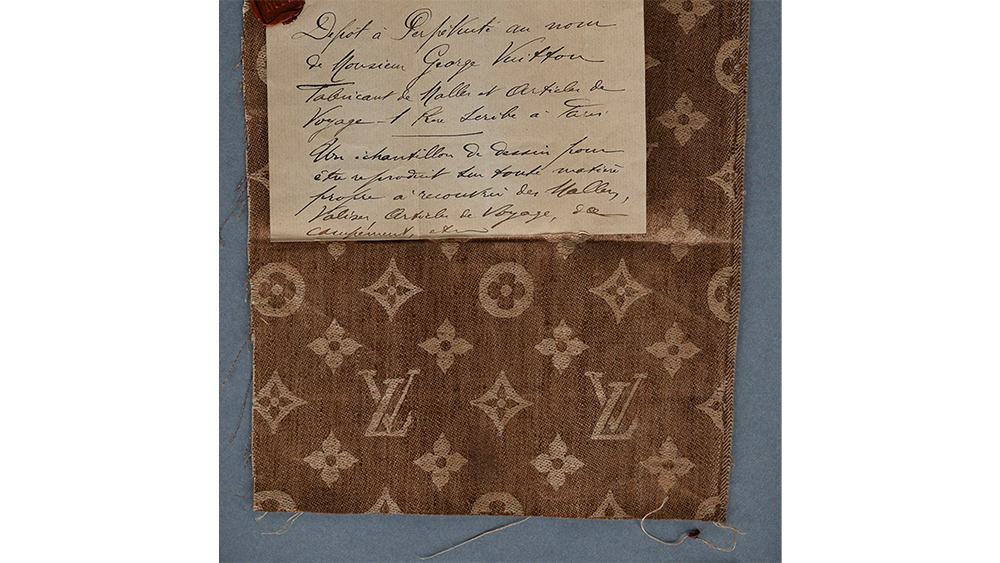 Depot à Perpétuité au nom
de Monsieur George Vuitton
Fabricant de Malles et Articles de
Voyage - 1 Rue Scribe à Paris
Un échantillon de dessin pour
être reproduit sur toute matière
propre à recouvrir des Malles,
Valises, Articles de Voyage, de
campement, etc
LV LV